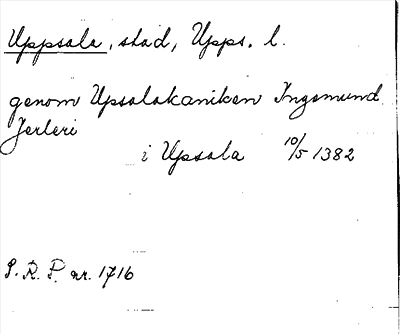 Uppsala, stad, Upps. l.
genom Upsalakaniken Ingemund
Jerleri
i Upsala 10/5 1382
S. R. P. nr. 1716